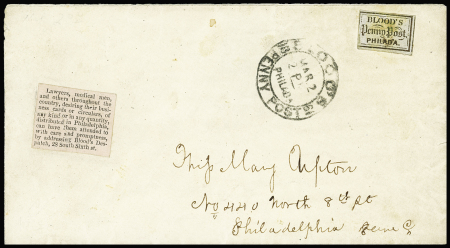 BLOOD'S
Penny Post.
PHILADA.
BLOOD'S
MAR 2
PHILAD
PENNY POST
Lawyers, medical men,
and others throughout the
country, desiring their busi-
ness cards or circulars, of
any kind or in any quantity,
distributed in Philadelphia,
can have them attended to
with care and promptness,
by addressing Blood's Des-
patch, 28 South Sixth st.
Miss Mary Upton
No 440 North 8th st
Philadelphia